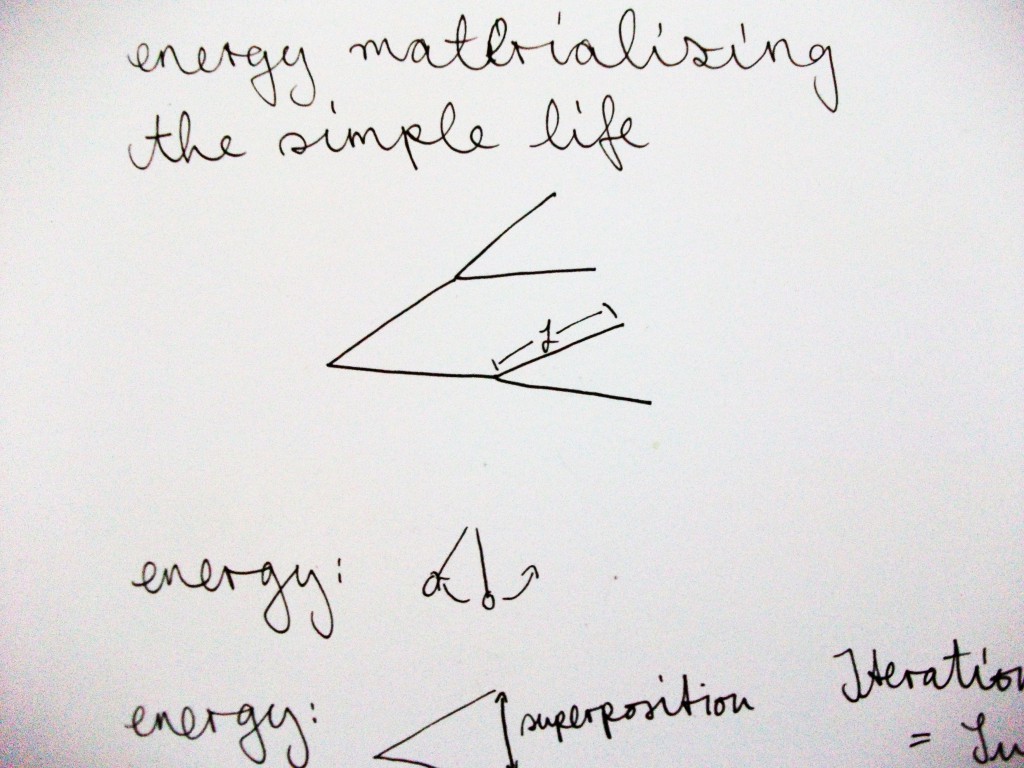 energy materialising
the simple life
energy: α
energy: superposition
Iteration
=